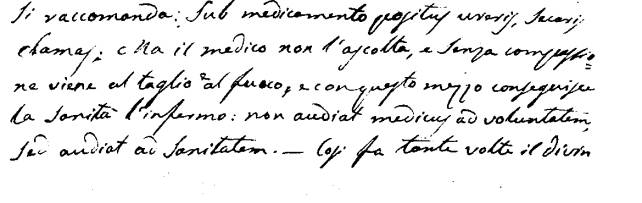 si raccomanda: sub medicamento positus ureris, secaris,
clamas; Ma il medico non l'ascolta, e senza compassio=
ne viene al taglio e al fuoco, e con questo mezzo conseguisce
la sanità l'infermo: non audiat medicus ad voluntatem,
sed audiat ad sanitatem. — Così fa tante volte il divin